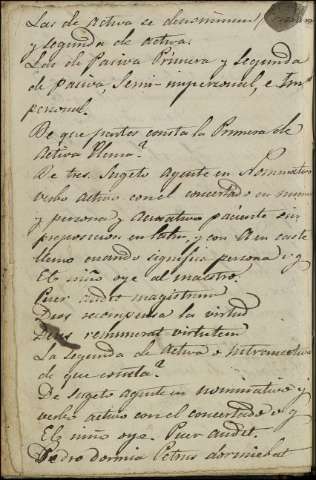 Las de Activa se denominan Primera
y segunda de activa.
Las de Pasiva Primera y segunda
de pasiva, Semi-impersonal, e Im-
personal.
De que partes consta la Primera de
Activa llena?
De tres. Sugeto agente en Nominativo
verbo activo con el concertado en numero
y persona, y acusativo paciente sin
preposicion en latin, y con A en caste
llano cuando significa persona v. g.
El niño oye al maestro.
Puer audit magistrum
Dios recompensa la virtud
Deus remunerat virtutem
La segunda de Activa o intransitiva
de que consta?
De sugeto agente en nominativo y
verbo activo con el concertado v. g
El niño oye. Puer audit.
Pedro dormia Petrus dormiebat